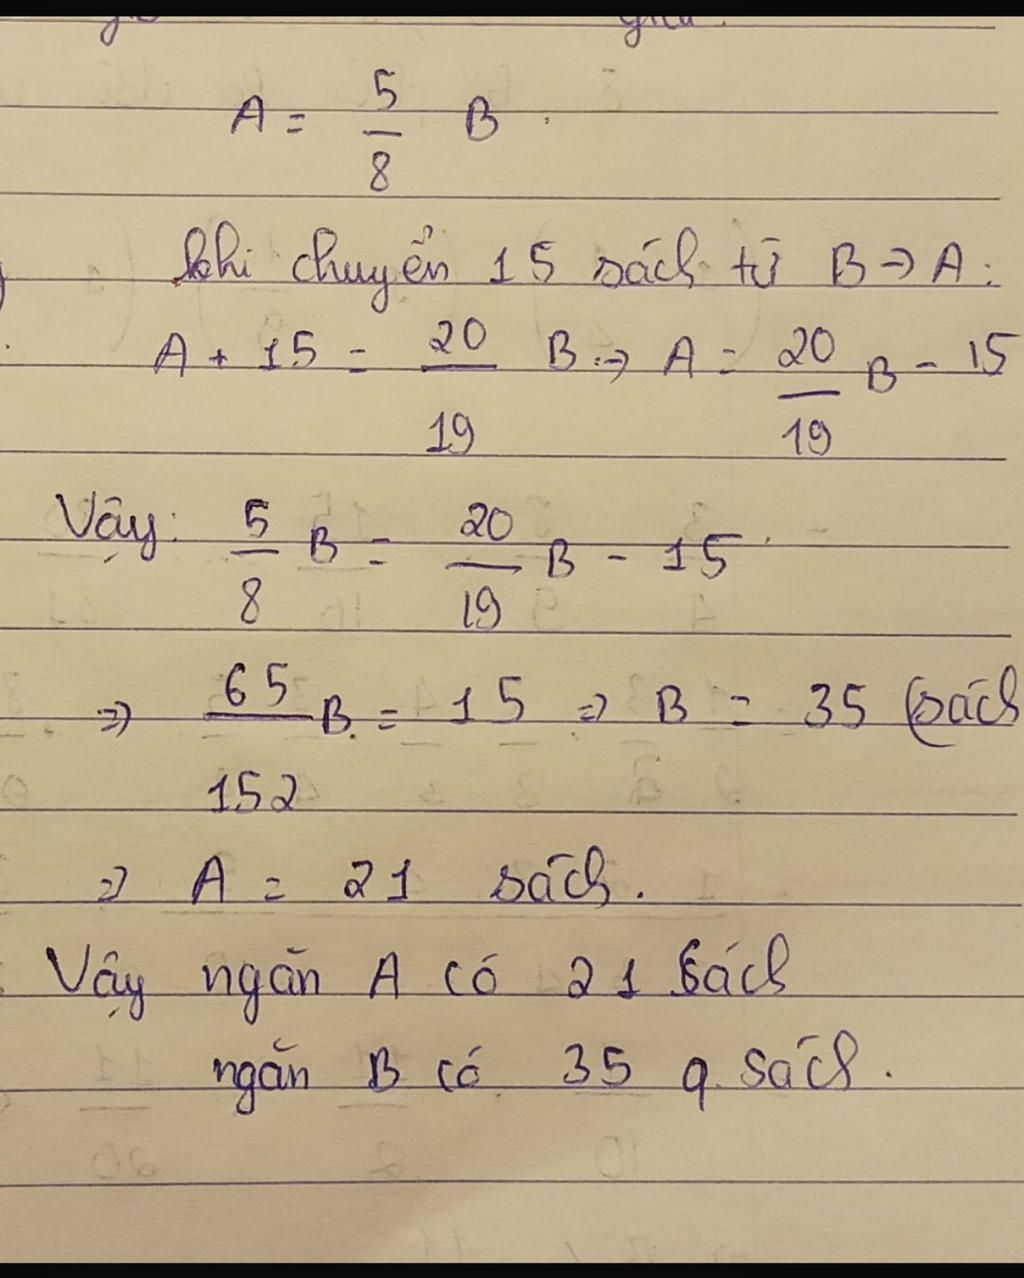 A = 5/8 B.
Khi chuyển 15 sách từ B → A:
A + 15 = 20/19 B ⇒ A = 20/19 B - 15
Vậy: 5/8 B = 20/19 B - 15
⇒ 65/152 B = 15 ⇒ B = 35 (sách
⇒ A = 21 sách.
Vậy ngăn A có 21 sách
ngăn B có 35 q. sách.